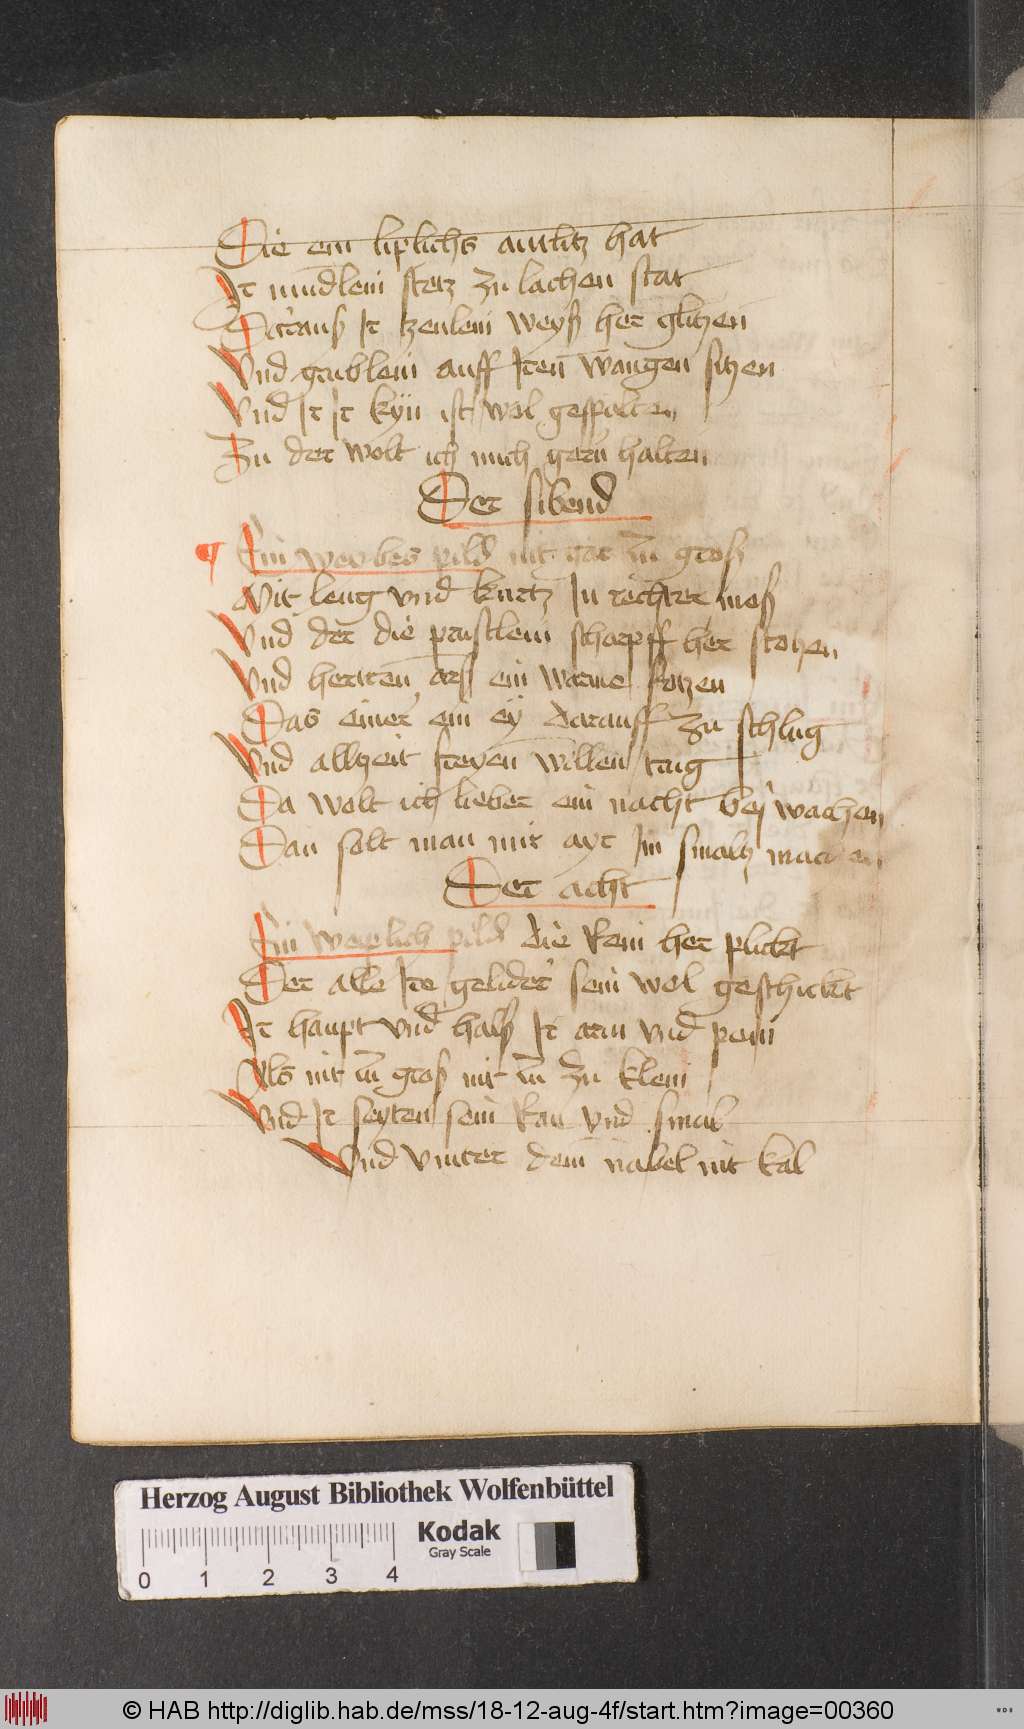 Die ein liplichs antlitz hat
Ir mündlein stetz zu lachen stat
Daraus Ir zenlein weyß her glitzen
Und grublein auff Iren wangen sitzen
Und Ir Ir kyn ist wol gespalten
Zu der wolt ich mich gern halten
Der sibend
Ein weybes pild nit gar zu groß
Mit leng und kurtz In rechter moß
Und der die prustlein scharpff her stotzen
Und herten arß ein warme fotzen
Das einer ein ey darauff zu schlug
Und allzeit freyen willen trug
Da wolt ich lieber ein nacht bey wachen
Dan solt man mir ayr Im smaltz machen
Der acht
Ein weyplich pild die kein her plickt
Der alle Ire gelider sein wol geschickt
Ir haupt und halß Ir arm und pein
Als nit zu groß nit zu klein
Und Ir seyten sein ran und smal
Und unter dem nabel nit kal
Herzog August Bibliothek Wolfenbüttel
Kodak
Gray Scale
0 1 2 3 4
© HAB http://diglib.hab.de/mss/18-12-aug-4f/start.htm?image=00360